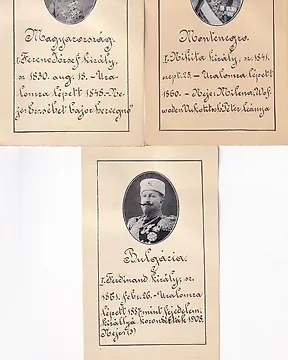 Magyarország.
I. Ferenc József király,
sz 1830. aug. 18. - Ura-
lomra lépett 1848. - Ne-
je: Erzsébet bajor hercegnő
Montenegro.
I. Nikita király, sz. 1841.
sept. 25. - Uralomra lépett
1860. - Neje: Milena, Woj-
woden Vukotitsch Péter leánya
Bulgária.
I. Ferdinand király, sz.
1861. febr. 26. - Uralomra
lépett 1887. mint fejedelem.
királlyá koronázták 1908.
Neje(s)